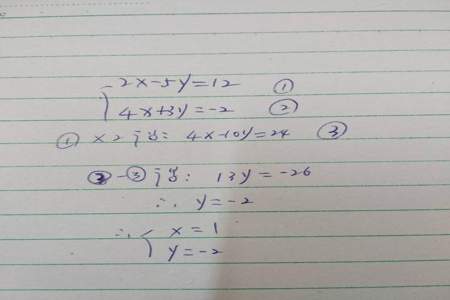 2x-5y=12 ①
4x+3y=-2 ②
①×2得: 4x-10y=24 ③
②-③得: 13y=-26
∴ y=-2
∴ { x=1
y=-2